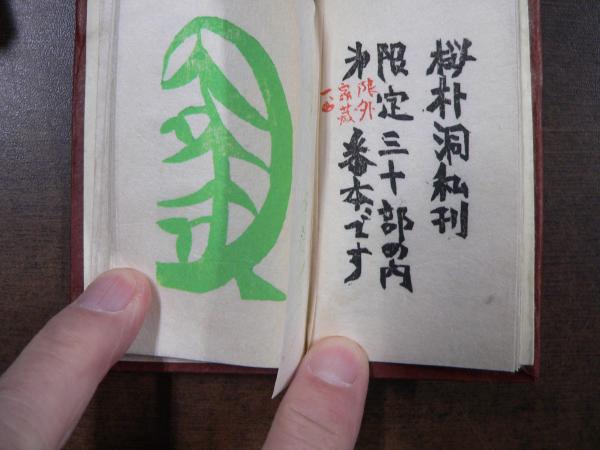 桜朴洞私刊
限定三十部の内
第 番本です
限外
家蔵